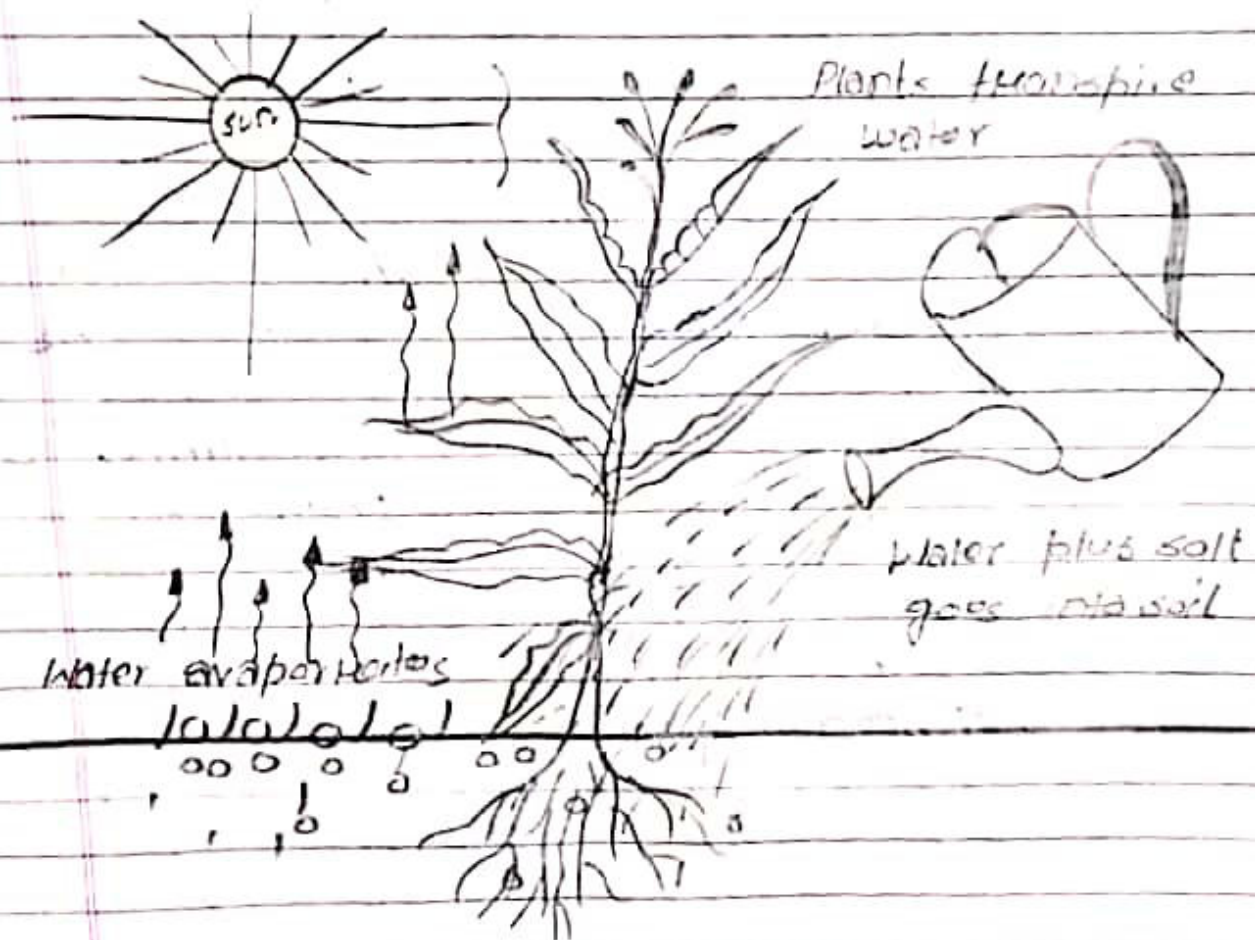 sun
Plants transpire
water
Water plus salt
goes into soil
Water evaporates